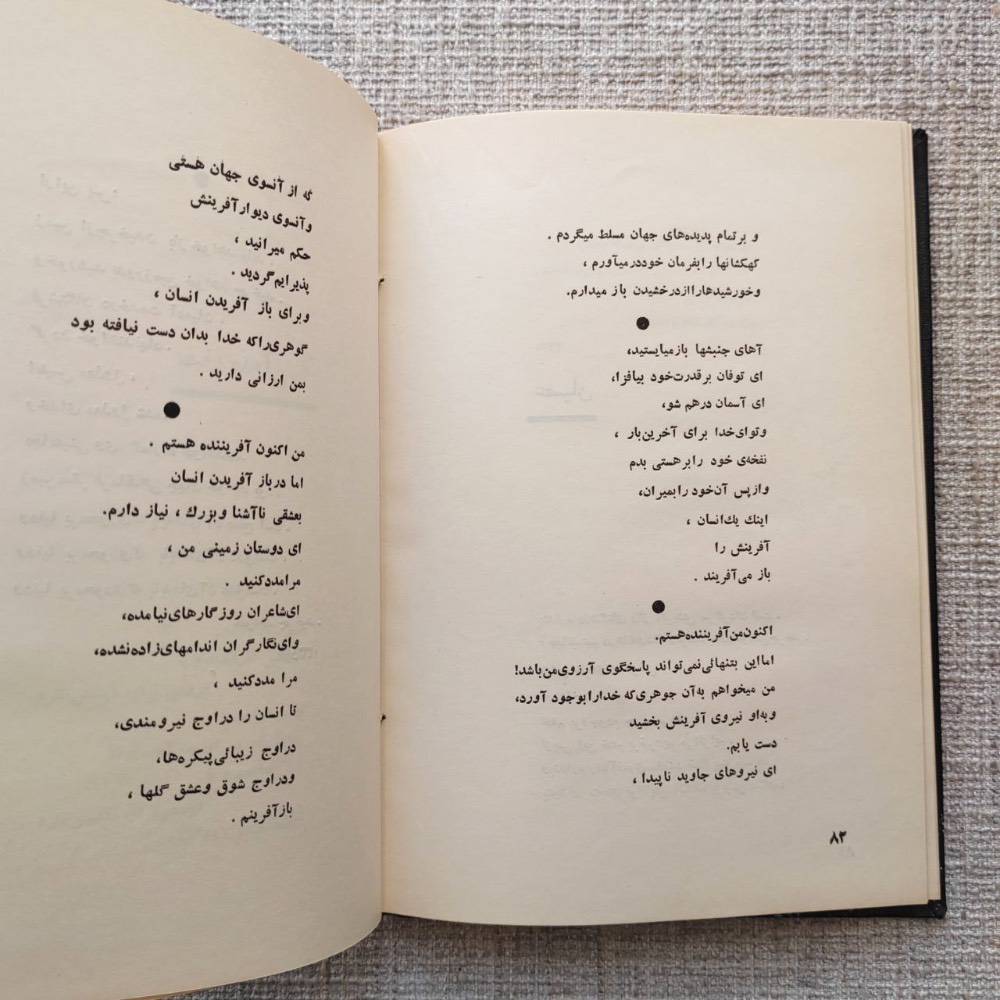 و برتمام پدیده‌های جهان مسلط میگردم .
کهکشانها رابفرمان خوددرمیآورم ،
وخورشیدهاراازدرخشیدن باز میدارم.
●
آهای جنبشها بازمیایستید،
ای توفان برقدرت‌خود بیافزا،
ای آسمان درهم شو،
وتوای‌خدا برای آخرین‌بار ،
نفخه‌ی خود رابرهستی بدم
وازپس آن‌خود رابمیران،
اینك یك‌انسان ،
آفرینش را
باز می‌آفریند .
●
اکنون‌من‌آفریننده‌هستم.
امااین بتنهائی‌نمی‌تواند پاسخگوی آرزوی‌من‌باشد!
من میخواهم به‌آن جوهری‌که خدارابوجود آورد،
وبه‌او نیروی آفرینش بخشید
دست یابم.
ای نیروهای جاوید ناپیدا ،
۸۲
که از آنسوی جهان هستی
وآنسوی دیوارآفرینش
حکم میرانید ،
پذیرایم‌گردید .
وبرای باز آفریدن انسان ،
گوهری‌راکه خدا بدان دست نیافته بود
بمن ارزانی دارید .
●
من اکنون آفریننده هستم .
اما درباز آفریدن انسان
بعشقی ناآشنا وبزرك ، نیاز دارم.
ای دوستان زمینی من ،
مرامددکنید .
ای‌شاعران روزگارهای‌نیامده،
وای‌نگارگران اندامهای‌زاده‌نشده،
مرا مددکنید ،
تا انسان را دراوج نیرومندی،
دراوج زیبائی‌پیکره‌ها،
ودراوج شوق وعشق گلها ،
بازآفرینم .